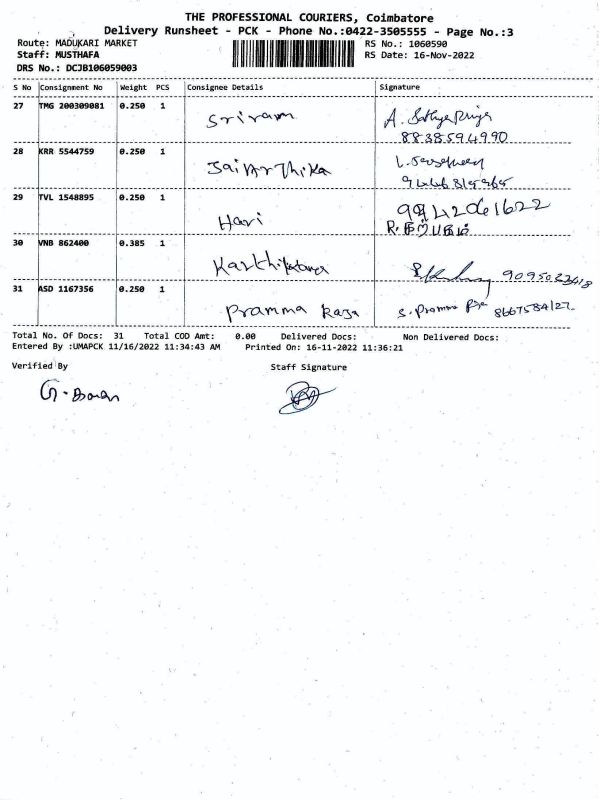 THE PROFESSIONAL COURIERS, Coimbatore
Delivery Runsheet - PCK - Phone No.:0422-3505555 - Page No.:3
Route: MADUKARI MARKET RS No.: 1060590
Staff: MUSTHAFA RS Date: 16-Nov-2022
DRS No.: DCJB106059003
S No Consignment No Weight PCS Consignee Details Signature
27 TMG 200309081 0.250 1 Sriram A. Sathya Priya
8838594990
28 KRR 5544759 0.250 1
29 TVL 1548895 0.250 1 Hari
R.
30 VNB 862400 0.385 1
31 ASD 1167356 0.250 1 Pramma Raja S. Pramma
Total No. Of Docs: 31 Total COD Amt: 0.00 Delivered Docs: Non Delivered Docs:
Entered By :UMAPCK 11/16/2022 11:34:43 AM Printed On: 16-11-2022 11:36:21
Verified By Staff Signature